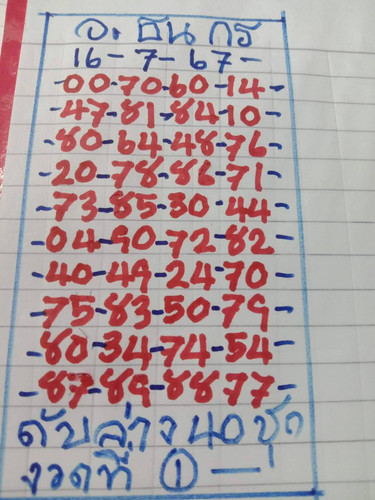 อ. ธนกร
16-7-67-
-00-70-60-14-
-47-81-84-10-
-80-64-48-76-
-20-78-86-71-
-73-85-30-44
-04-90-72-82-
-40-49-24-70-
-75-83-50-79-
-80-34-74-54
-87-89-88-77-
ดับล่าง 40 ชุด
งวดที่ ① —